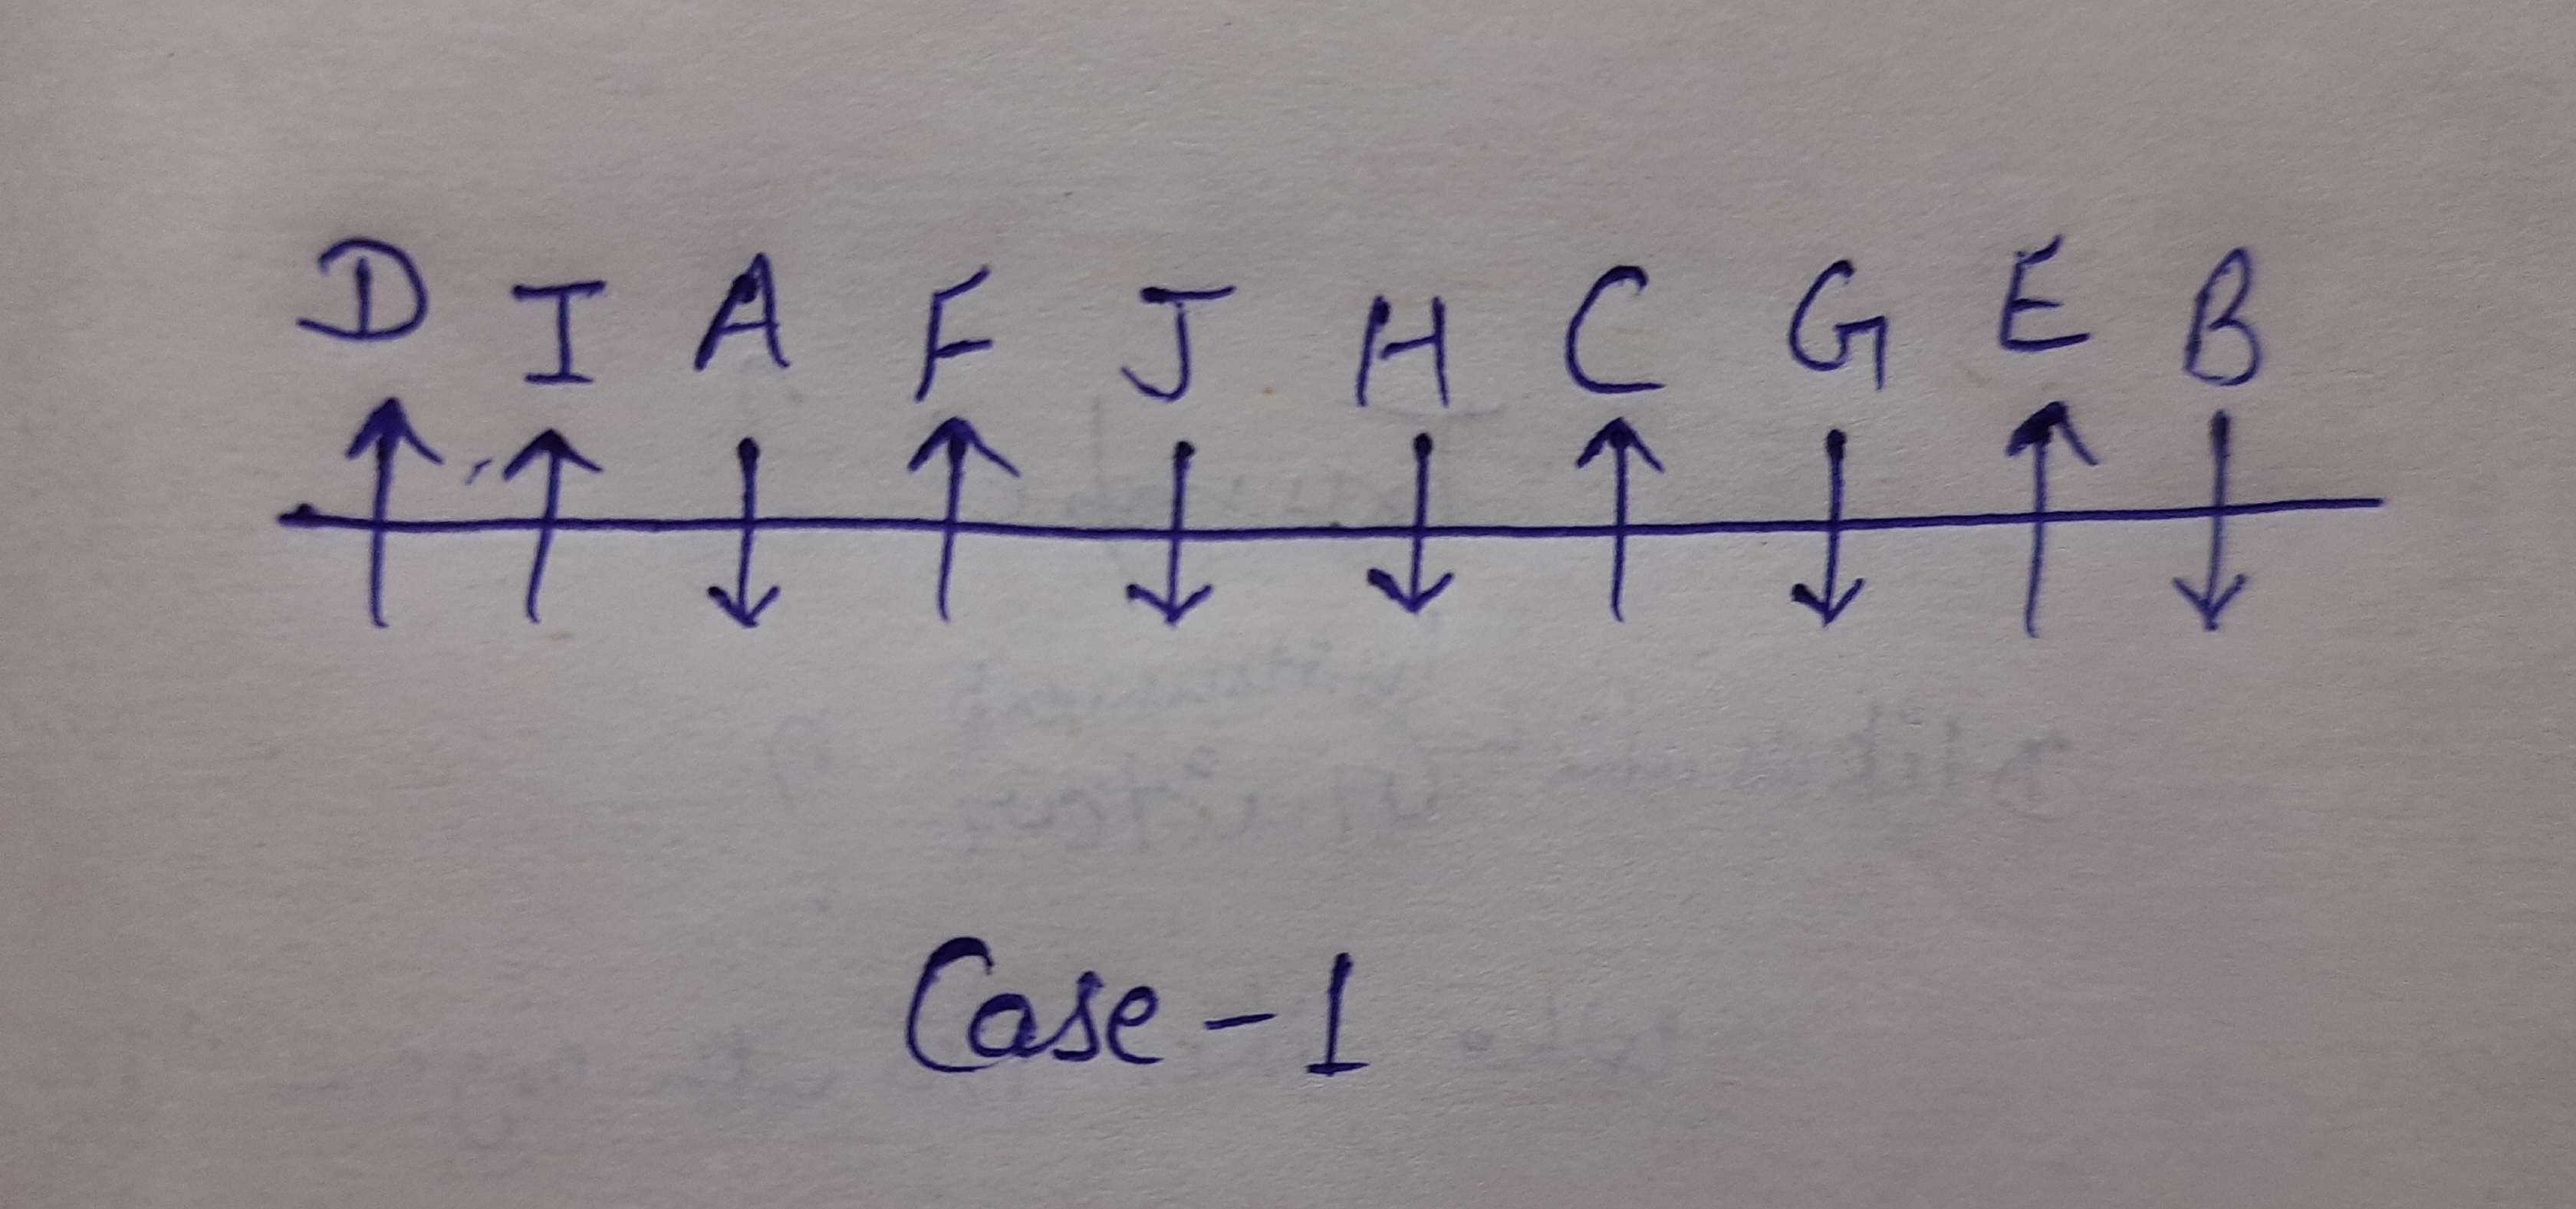 D I A F J H C G E B
Case-1